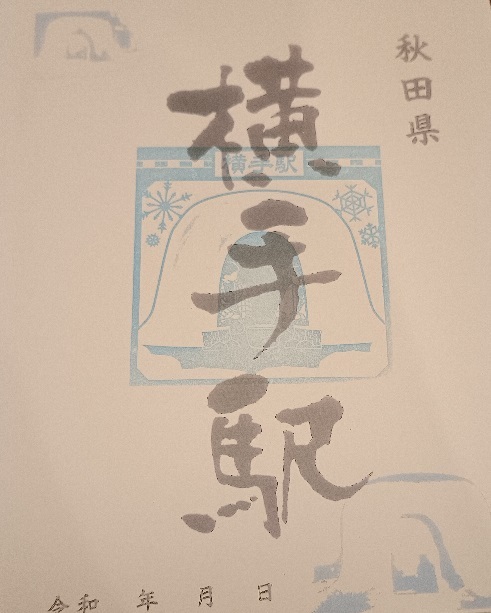 秋田県
横手駅
横手駅
令和 年 月 日